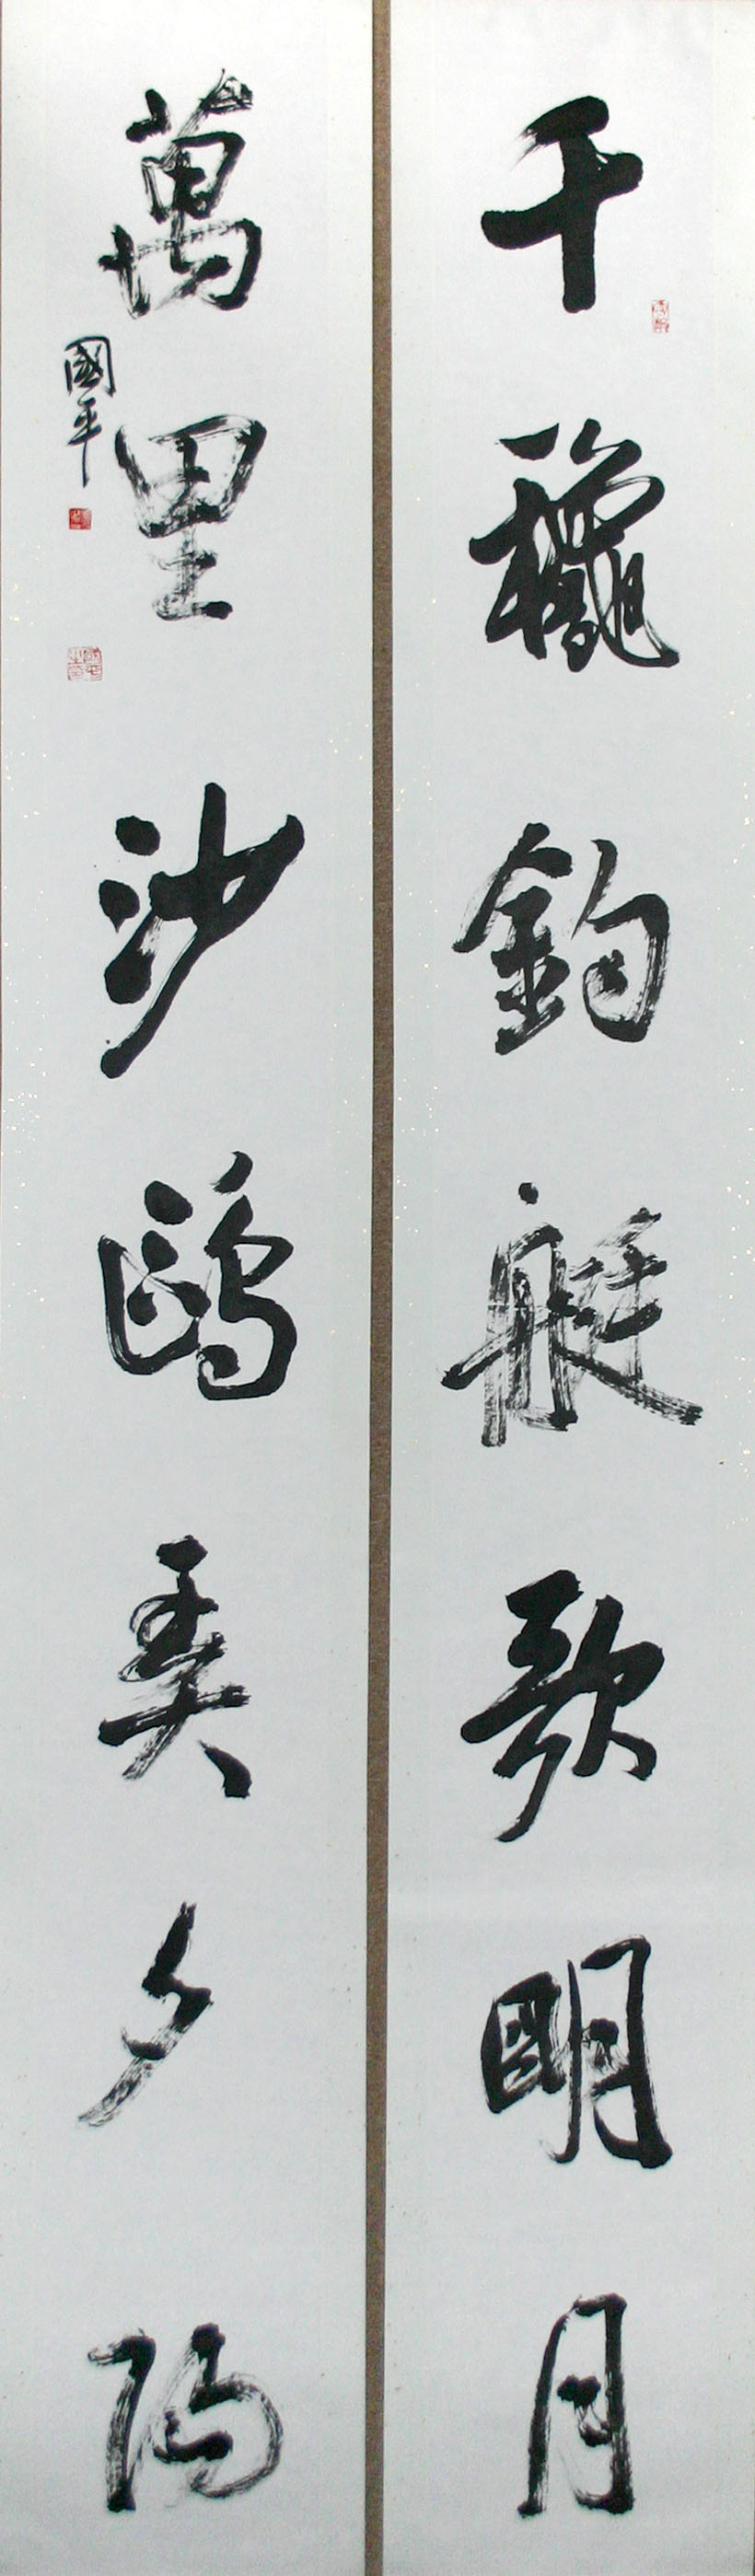 千龝釣艇歌明月
萬里沙鷗弄夕陽
國平